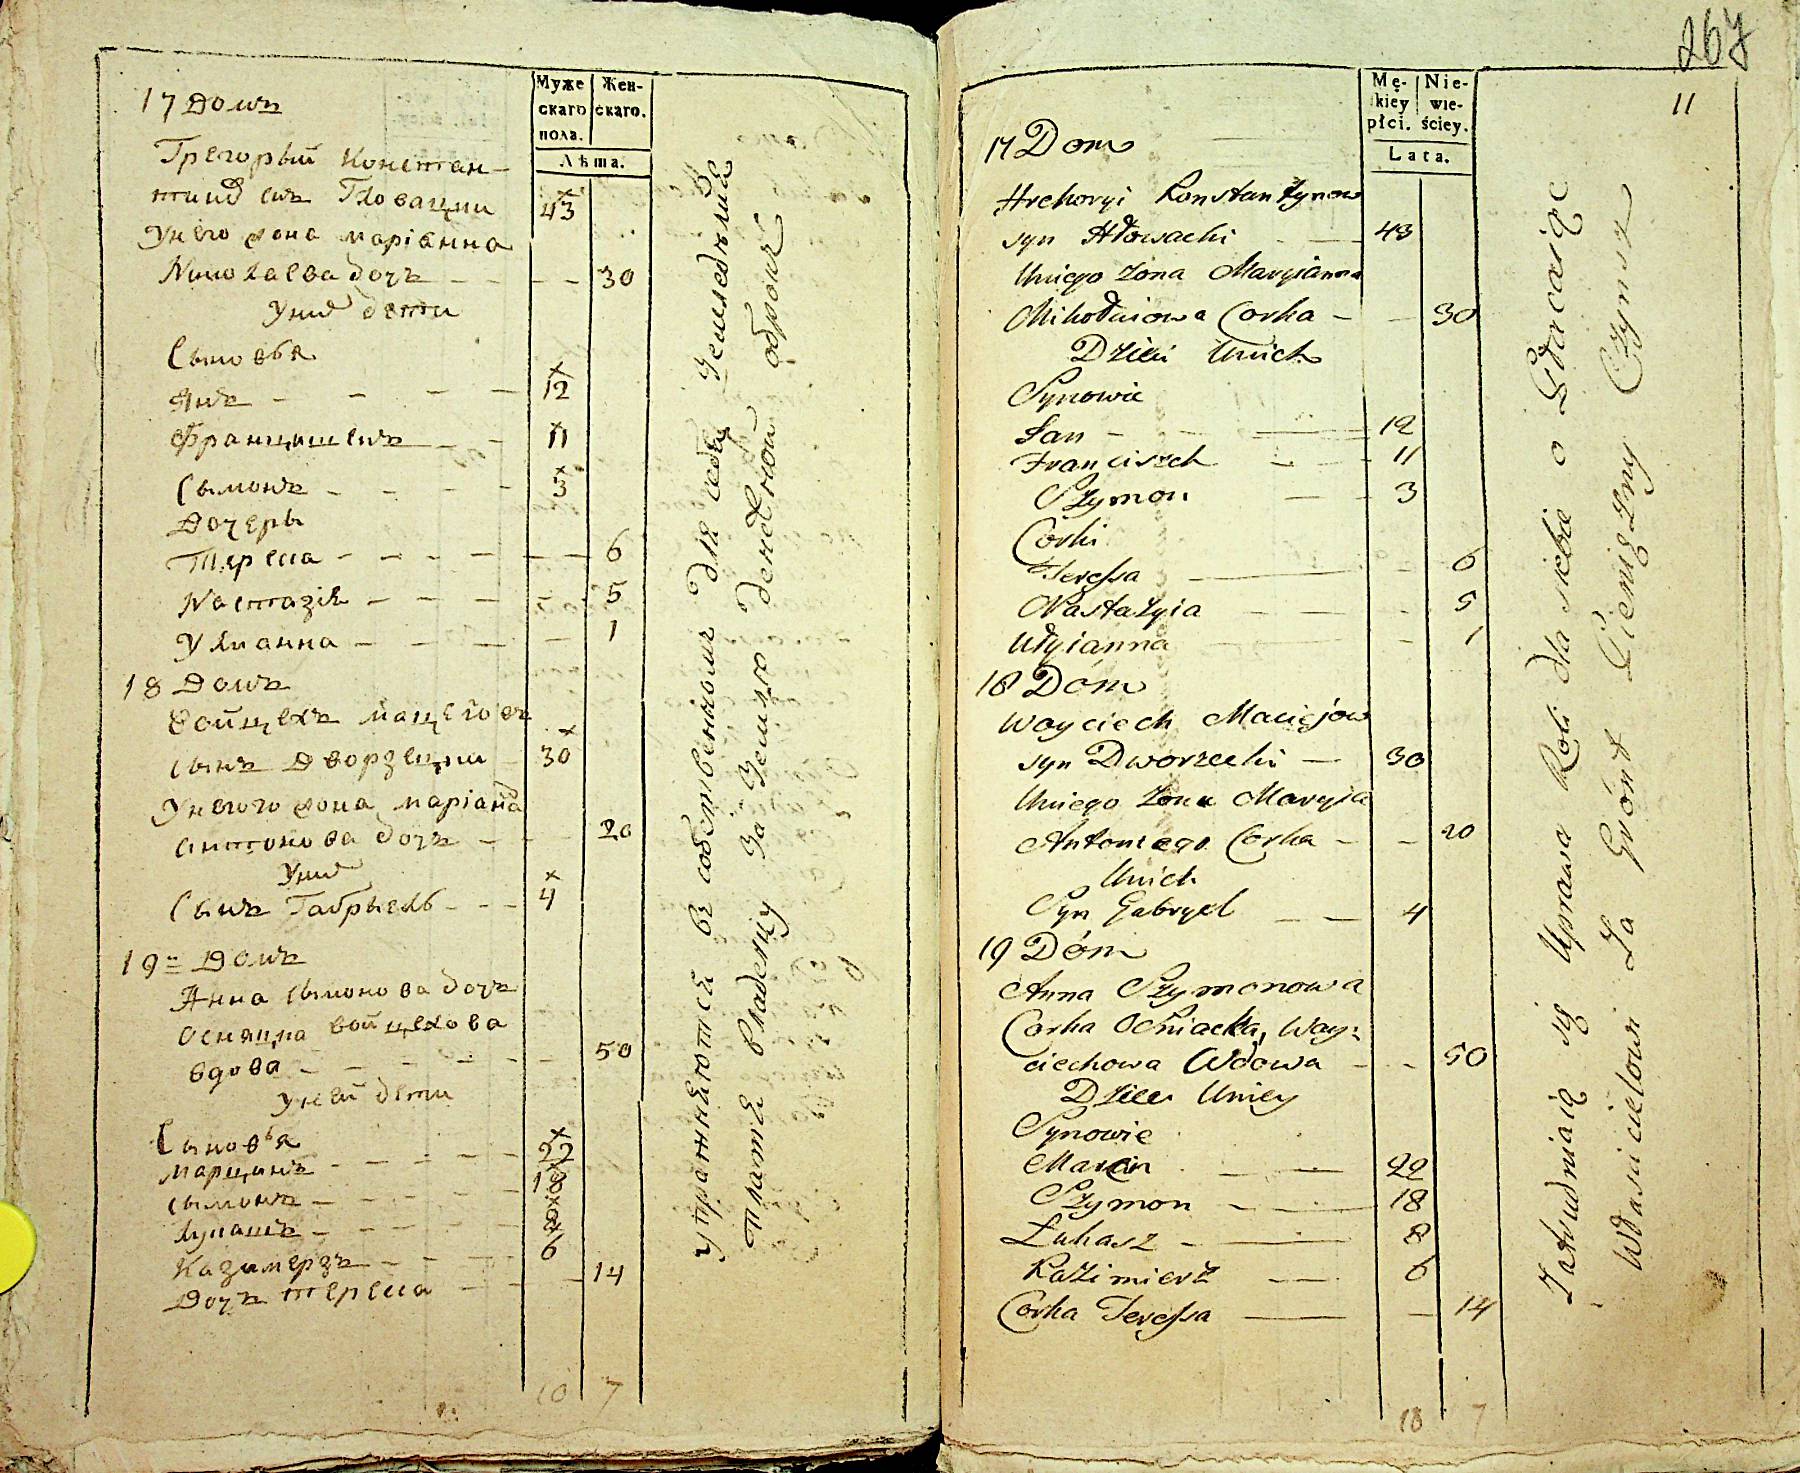 Муже Жен-
скаго скаго.
пола.
Лѣта.
17 Домъ
Грегорый Констан-
тиновъ сынъ Гловацки 43
Унего жона маріанна
Николаева дочъ 30
Уних дети
Сыновья
Янъ 12
Францишекъ 11
Сымонъ 3
Дочеры
Тереса 6
Настазія 5
Улианна 1
18 Домъ
Войцехъ мацеіовъ
сынъ Дворзецки 30
Унего жона маріана
антонова дочъ 20
Уних
Сынъ Габрыель 4
19 Домъ
Анна сымонова дочъ
осняцка войцехова
вдова 50
Уней дети
Сыновья
марцинъ 22
сымонъ 18
лукашъ 8
Казимерзъ 6
Дочъ тереса 14
10 7
упражняются въ собственномъ для себя земледѣлии
платя владелцу за землю денежной оброкъ
267
11
Mę- Nie-
kiey wie-
płci. ściey.
Lata.
17 Dom
Hrehoryi Konstantynow
syn Hłowacki 43
Uniego żona Maryianna
Mikołaiowa Corka 30
Dzieci Unich
Synowie
Jan 12
Franciszek 11
Szymon 3
Corki
Teressa 6
Nastazyia 5
Ulyianna 1
18 Dóm
Woyciech Maciejow
syn Dworzecki 30
Uniego żona Maryia
Antoniego Corka 20
Unich
Syn Gabryel 4
19 Dóm
Anna Szymonowa
Corka Ośniacka, Woy:
ciechowa Wdowa 50
Dzieci Uniey
Synowie
Marcin 22
Szymon 18
Łukasz 8
Kazimierz 6
Corka Teressa 14
10 7
Zatrudniaią się Uprawa Roli dla siebie o Płacaiąc
Właścicielowi Za Grónt Pieniężny Czynsz